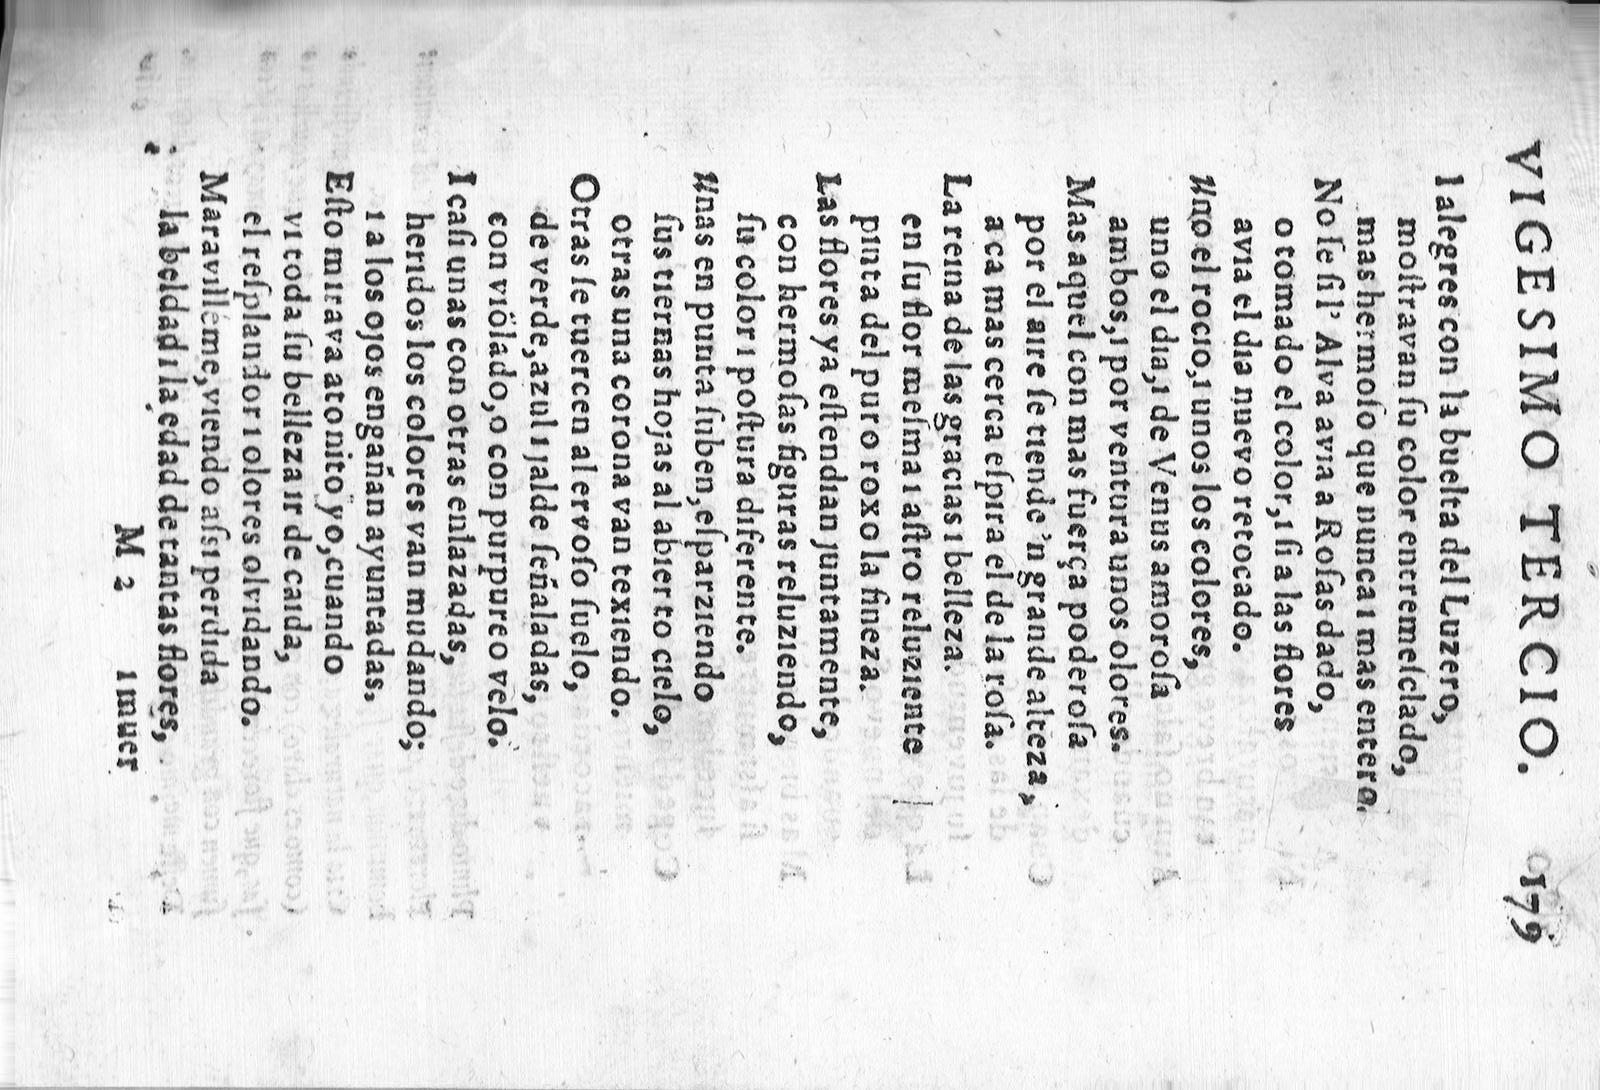 VIGESIMO TERCIO. 179
I alegres con la buelta del Luzero,
moſtravan ſu color entremeſclado,
mas hermoſo que nunca ı mas entero.
No ſe ſi l' Alva avıa a Roſas dado,
o tomado el color, ı ſi a las flores
avıa el dıa nuevo retocado.
Uno el rocıo, ı unos los colores,
uno el dıa, ı de Venus amoroſa
ambos, ı por ventura unos olores.
Mas aquel con mas fuerça poderoſa
por el aıre ſe tıende 'n grande alteza,
a ca mas cerca eſpıra el de la roſa.
La reına de las gracıas ı belleza.
en ſu flor meſma ı aſtro reluzıente
pınta del puro roxo la fineza.
Las flores ya eſtendıan ȷuntamente,
con hermoſas figuras reluzıendo,
ſu color ı poſtura dıferente.
Unas en punta ſuben, eſparzıendo
ſus tıernas hoȷas al abıerto cıelo,
otras una corona van texıendo.
Otras ſe tuercen al ervoſo ſuelo,
de verde, azul ı ȷalde ſeñaladas,
con vıölado, o con purpureo velo.
I caſi unas con otras enlazadas,
herıdos los colores van mudando;
ı a los oȷos engañan ayuntadas.
Eſto mırava atonıto yo, cuando
vı toda ſu belleza ır de caıda,
el reſplandor ı olores olvıdando.
Maravılléme, vıendo aſsı perdıda
la beldad ı la edad de tantas flores,
M 2 ı muer